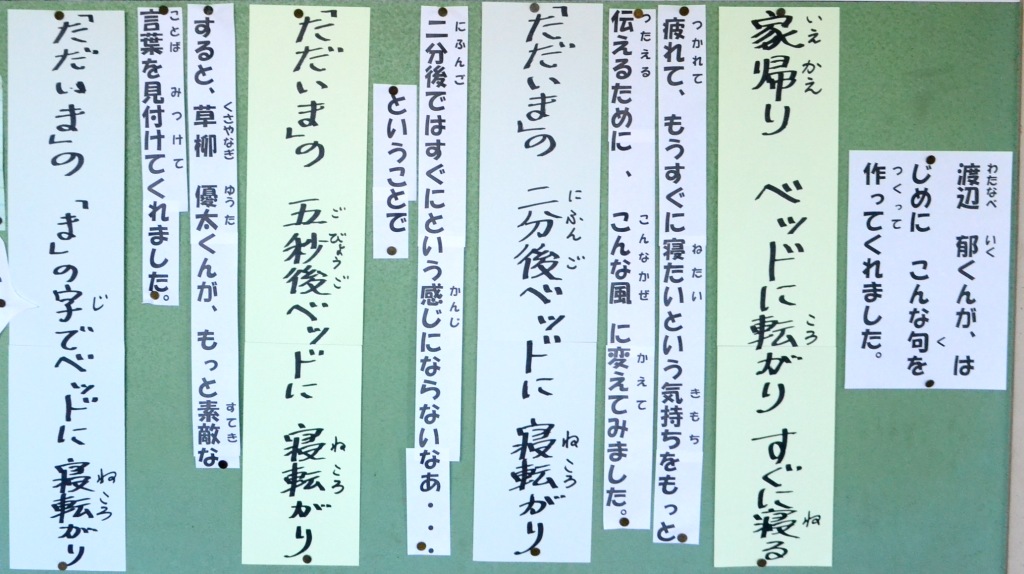 渡辺　郁くんが、は
じめに　こんな句を
作ってくれました。
家帰り　ベッドに転がり　すぐに寝る
疲れて、もうすぐに寝たいという気持ちをもっと
伝えるために、こんな風に変えてみました。
「ただいま」の　二分後ベッドに　寝転がり
二分後ではすぐにという感じにならないなぁ・・・
ということで
「ただいま」の　五秒後ベッドに　寝転がり
すると、草柳　優太くんが、もっと素敵な
言葉を見付けてくれました。
「ただいま」の　「ま」の字でベッドに　寝転がり